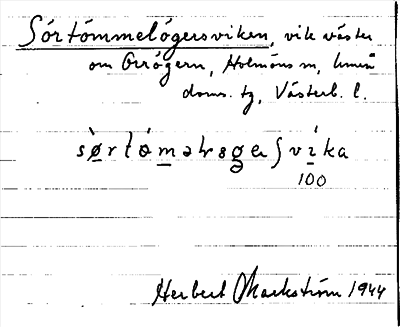 Sörtömmelögersviken, vik väster
om Orrögern, Holmöns sn, Umeå
doms. tg, Västerb. l.
100
Herbert Markström 1944